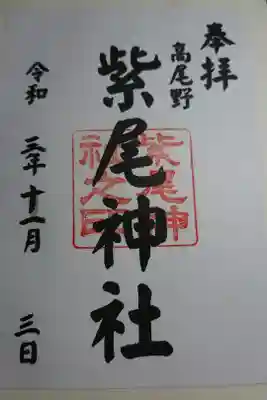 奉拝
高尾野
紫尾神社
紫尾神
社之印
令和 三年 十一月 三日